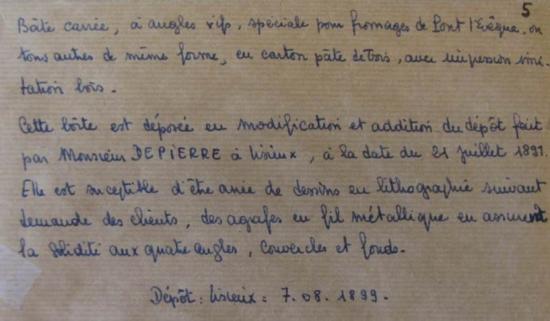 5
Boîte carrée, à angles vifs, spéciale pour fromages de Pont l'Evêque ou
tous autres de même forme, en carton pâte de bois, avec impression imi-
tation bois.
Cette boîte est déposée en modification et addition du dépôt fait
par Monsieur DEPIERRE à Lisieux, à la date du 21 juillet 1891.
Elle est susceptible d'être ornée de dessins en lithographie suivant
demande des clients, des agrafes en fil métallique en assurent
la solidité aux quatre angles, couvercles et fonds.
Dépôt : Lisieux : 7.08.1899.